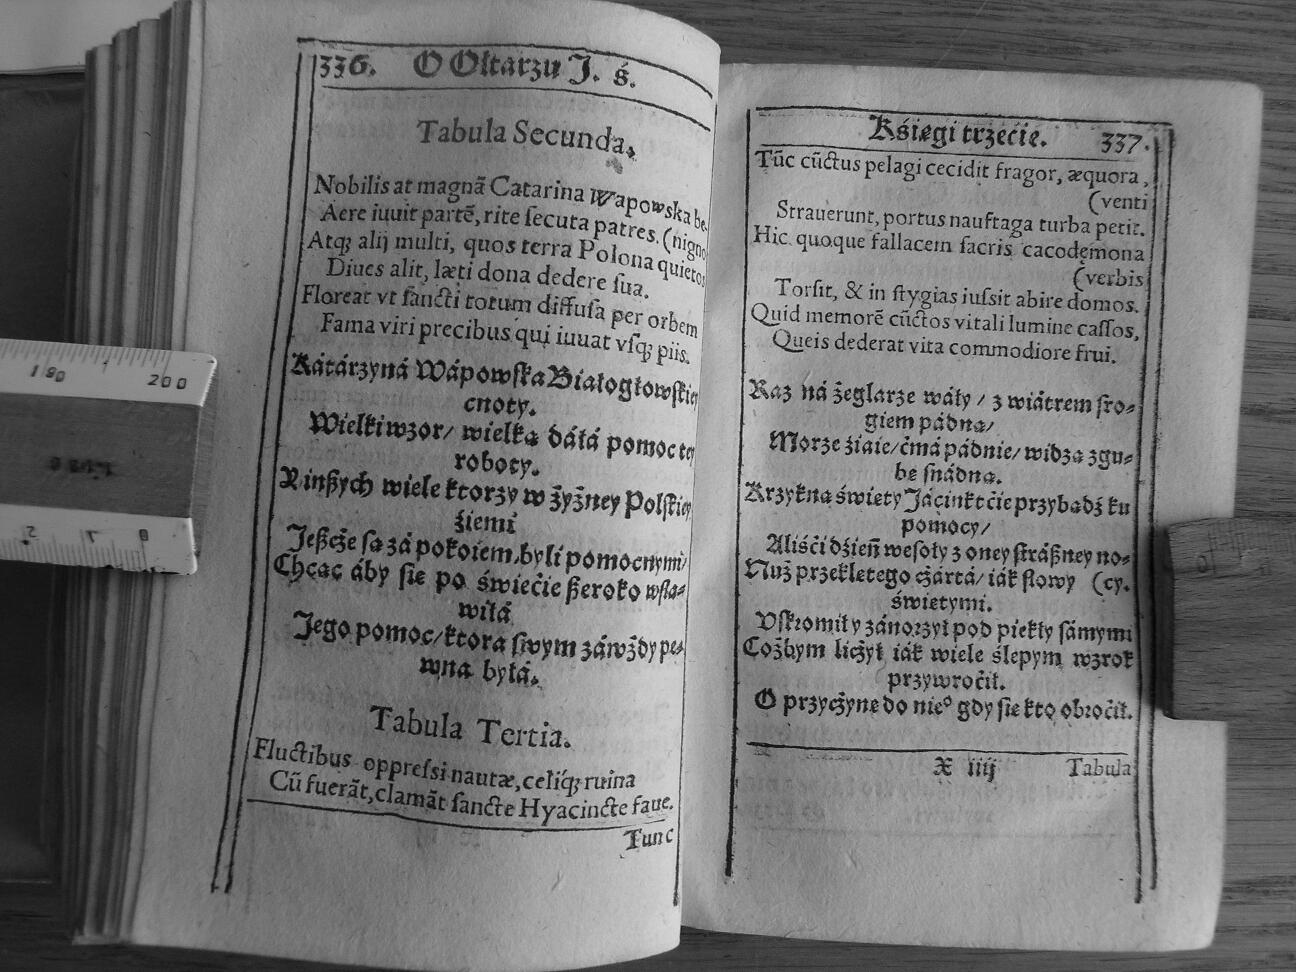 336. O Ołtarzu J. ś.
Tabula Secunda.
Nobilis at magnā Catarina Wapowska be-
Aere iuuit partē, rite ſecuta patres. (nigno
Atqꝫ alij multi, quos terra Polona quietos
Diues alit, læti dona dedere ſua.
Floreat vt ſancti totum diffuſa per orbem
Fama viri precibus qui iuuat vſqꝫ piis.
Kátárzyná Wápowſka Białogłowſkiey
cnoty.
Wielki wzor/ wielką dáłá pomoc tey
roboty.
Y inßych wiele ktorzy w żyżney Polſkiey
źiemi
Jeßcże ſą zá pokoiem, byli pomocnymi/
Chcąc áby ſie po świećie ßeroko wſła⸗
wiłá
Jego pomoc/ ktora ſwym záwżdy pe⸗
wna byłá.
Tabula Tertia.
Fluctibus oppreſsi nautæ, celiqꝫ ruina
Cū fuerāt, clamāt ſancte Hyacincte faue.
Tunc
Kśięgi trzećie. 337.
Tūc cūctus pelagi cecidit fragor, æquora,
(venti
Strauerunt, portus nauftaga turba petit.
Hic quoque fallacem ſacris cacodęmona
(verbis
Torſit, & in ſtygias iuſsit abire domos.
Quid memorē cūctos vitali lumine caſſos,
Queis dederat vita commodiore frui.
Raz ná żeglarze wáły / z wiátrem ſro⸗
giem pádną/
Morze źiáie/ ćmá pádnie/ widzą zgu⸗
bę ſnádną.
Krzykną święty Jácinkt́ćie przybądź ku
pomocy/
Aliśći dźień weſoły z oney ſtráßney no⸗
Nuż przeklętego cżártá/ iák ſłowy (cy.
świętymi.
Vſkromiły zánorzył pod piekły ſámymi
Cożbym licżył iák wiele ślepym wzrok
przywroćił.
O przycżynę do nieº gdy ſie kto obroćił.
X iiij Tabula
190 200
2 1 0